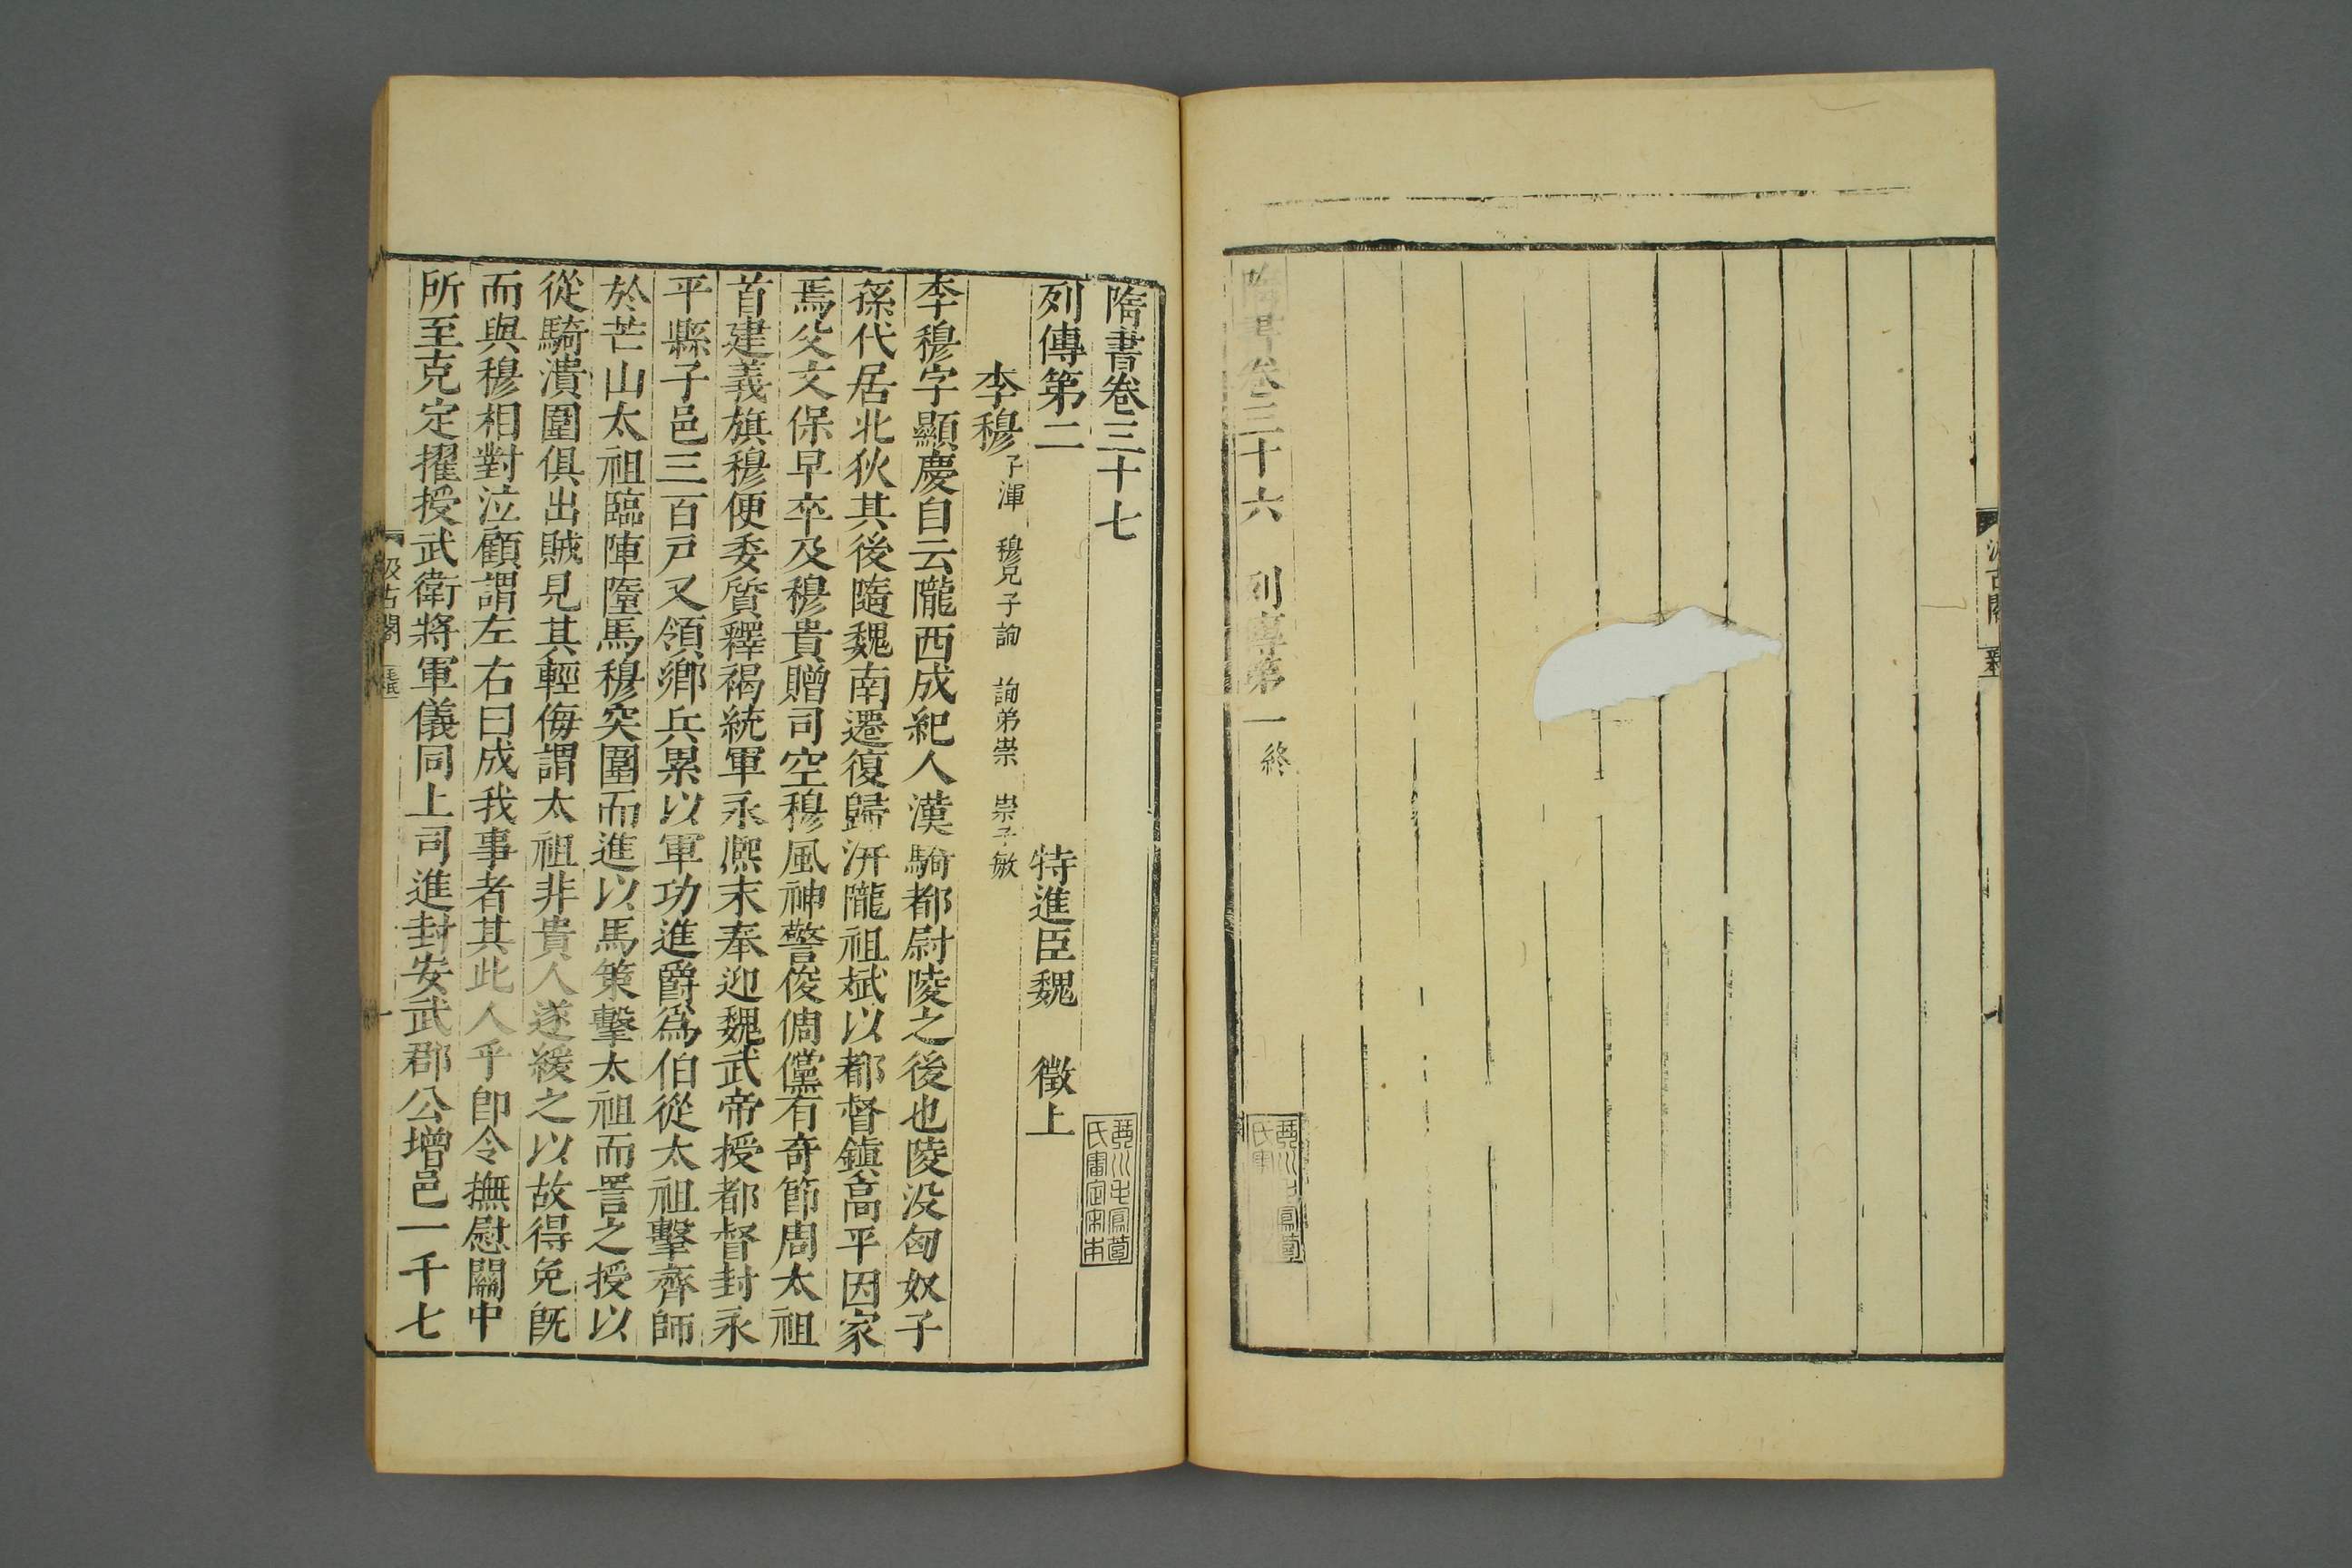 隋書卷三十六　列傳第一終
隋書卷三十七
列傳第二　特進臣魏　徵上
李穆子渾　穆兄子詢　詢弟崇　崇子敏
李穆字顯慶自云隴西成紀人漢騎都尉陵之後也陵没匈奴子
孫代居北狄其後隨魏南遷復歸汧隴祖斌以都督鎮高平因家
焉父文保早卒及穆貴贈司空穆風神警俊倜儻有奇節周太祖
首建義旗穆便委質釋褐統軍永熈末奉迎魏武帝授都督封永
平縣子邑三百戸又領鄉兵累以軍功進爵爲伯從太祖擊齊師
於芒山太祖臨陣墮馬穆突圍而進以馬策擊太祖而詈之授以
從騎潰圍俱出賊見其輕侮謂太祖非貴人遂緩之以故得免旣
而與穆相對泣顧謂左右曰成我事者其此人乎卽令撫慰關中
所至克定擢授武衛將軍儀同上司進封安武郡公增邑一千七
汲古閣